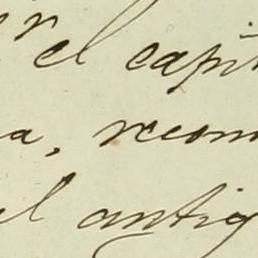 r el capit
a, recon
el antig